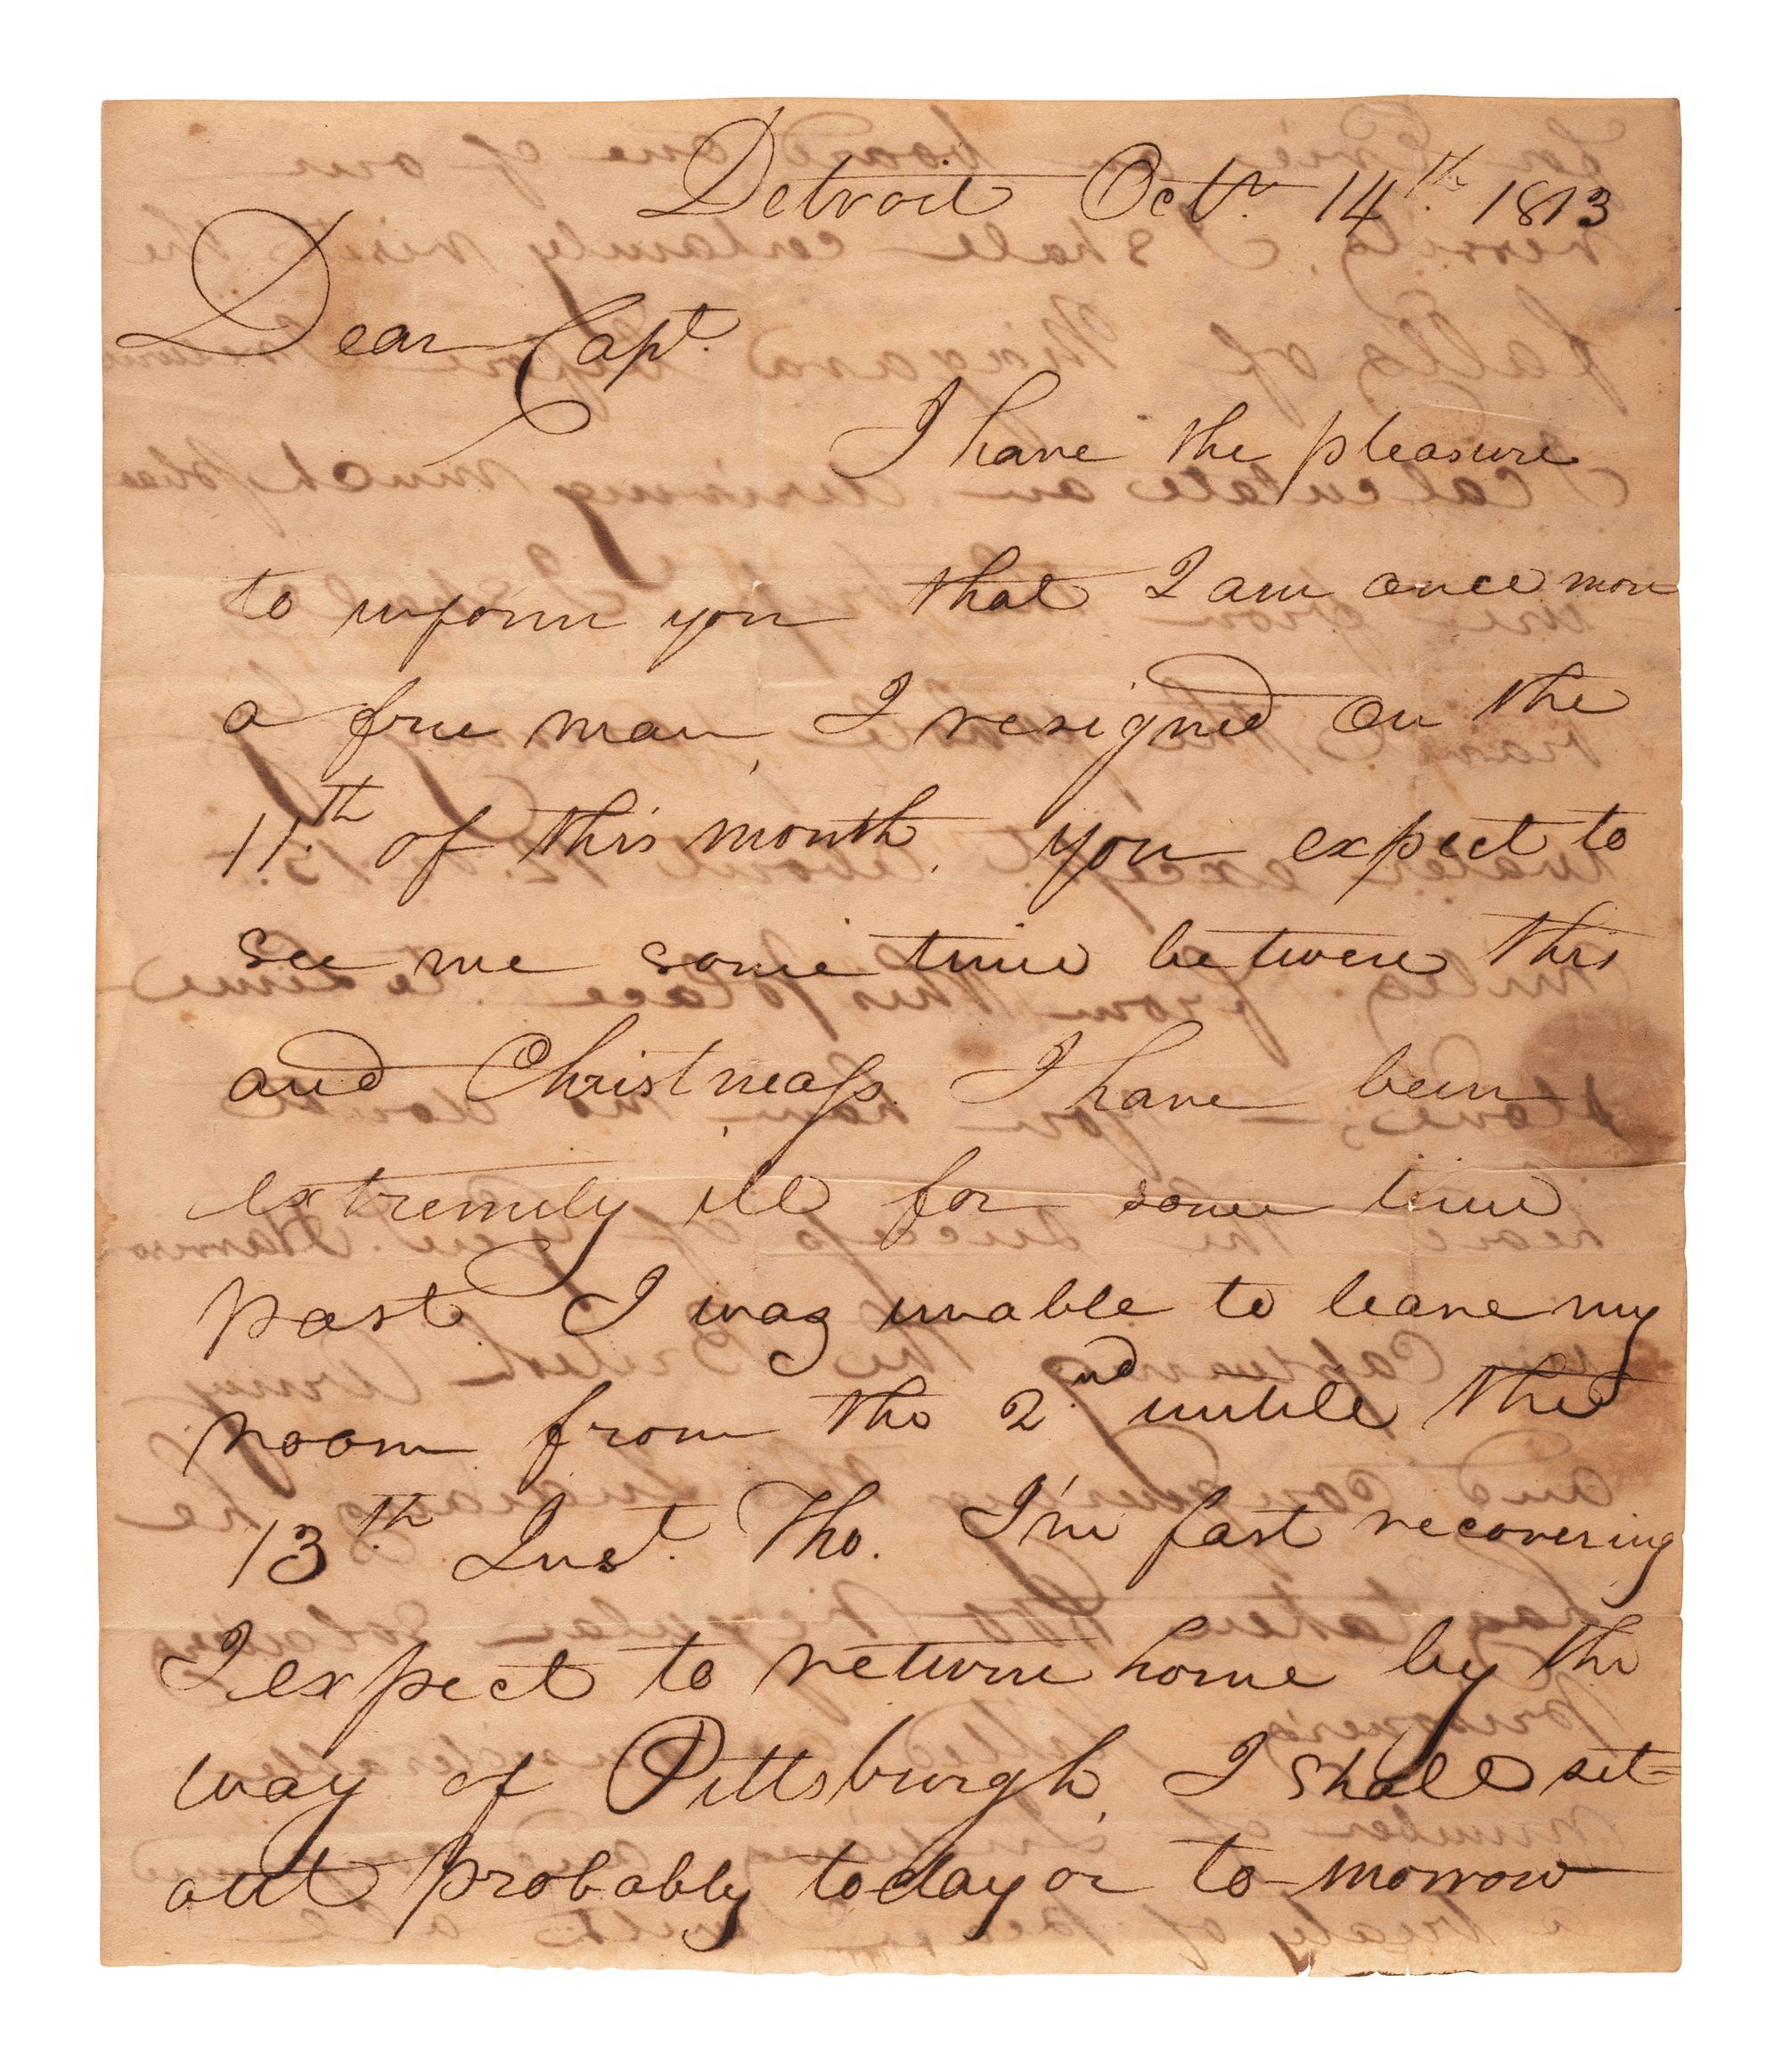 Detroit Octr. 14th. 1813
Dear Capt.
I have the pleasure
to inform you that I am once more
a free man, I resigned on the
11th. of this month. you expect to
see me some time between this
and Christmass. I have been
extremely ill for some time
past I was unable to leave my
room from the 2nd. untill the
13th. Inst. Tho. I'm fast recovering
I expect to return home by the
way of Pittsburgh, I shall set-
out probably today or to-morrow